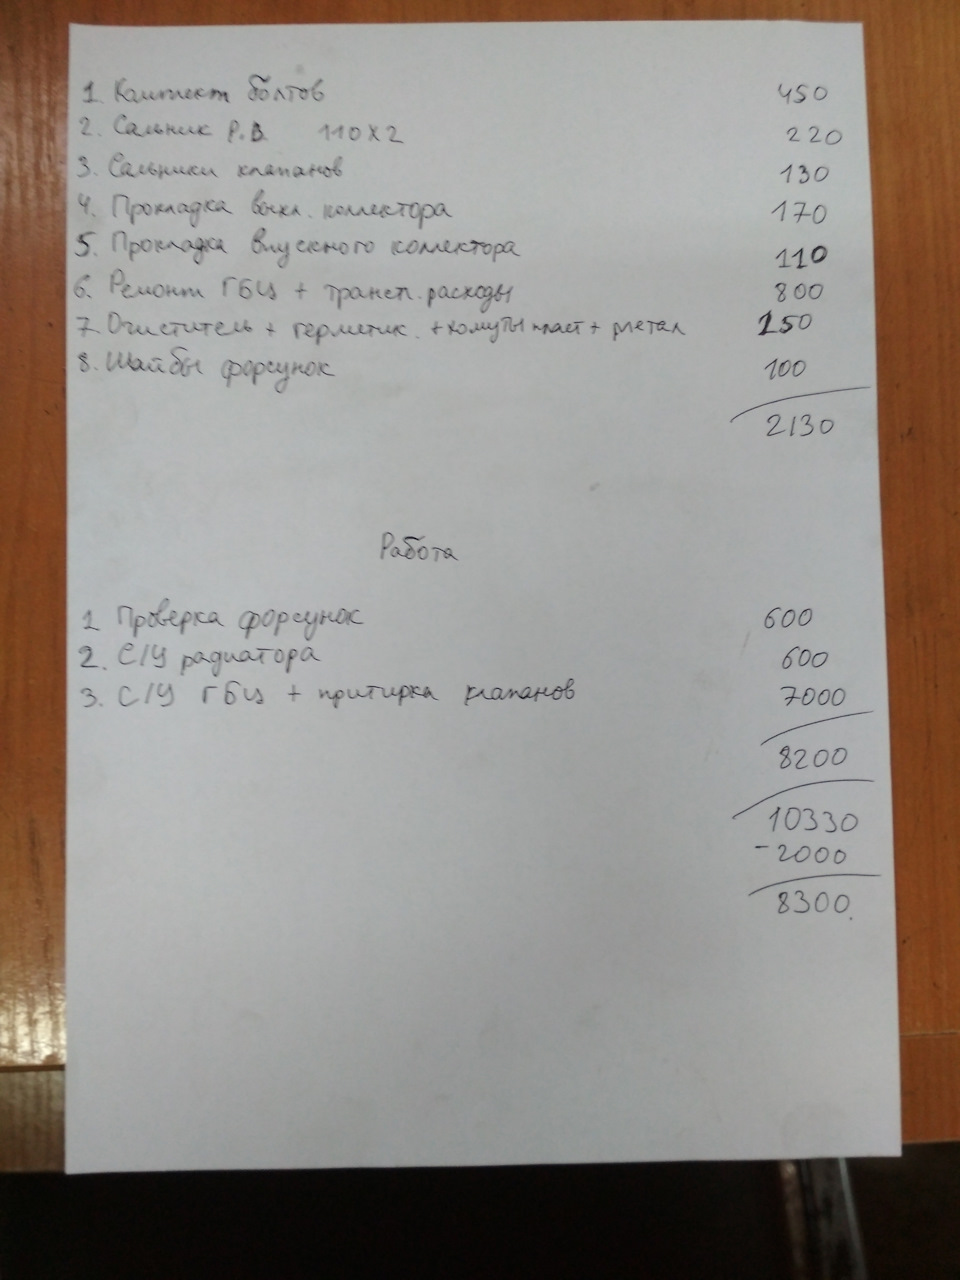 1. Комплект болтов 450
2. Сальник Р.В. 110х2 220
3. Сальники клапанов 130
4. Прокладка выхл. коллектора 170
5. Прокладка впускного коллектора 110
6. Ремонт ГБЦ + трансп. расходы 800
7. Очиститель + герметик. + хомуты пласт + метал 150
8. Шайбы форсунок 100
2130
Работа
1 Проверка форсунок 600
2. С/У радиатора 600
3. С/У ГБЦ + притирка клапанов 7000
8200
10330
-2000
8300.